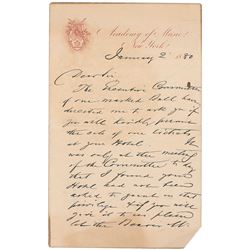 Academy of Music
New York
January 2 1880
Dear Sir
The Executive Committee
of our masked Ball have
directed me to ask you if
you will kindly permit
the sale of our tickets
at your Hotel. It
was only at the meeting
of the Committee to day
that I found your
Hotel had not been
asked to grant us that
privilege & if you will
give it to us please
let the Bearer